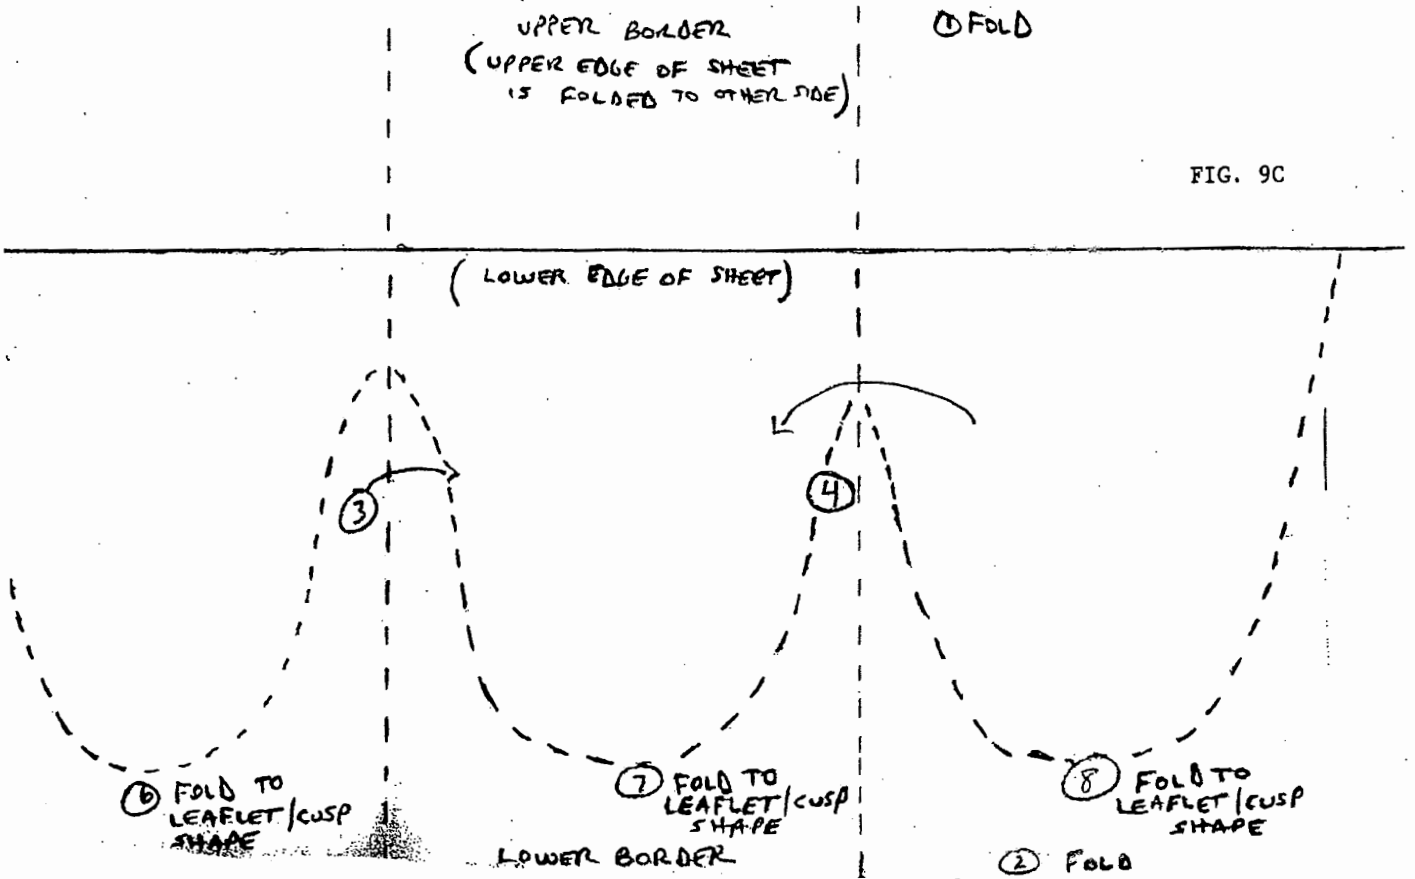 UPPER BORDER
(UPPER EDGE OF SHEET
IS FOLDED TO OTHER SIDE)
① FOLD
FIG. 9C
(LOWER EDGE OF SHEET)
③
④
⑥ FOLD TO
LEAFLET/CUSP
SHAPE
⑦ FOLD TO
LEAFLET/CUSP
SHAPE
⑧ FOLD TO
LEAFLET/CUSP
SHAPE
LOWER BORDER
② FOLD